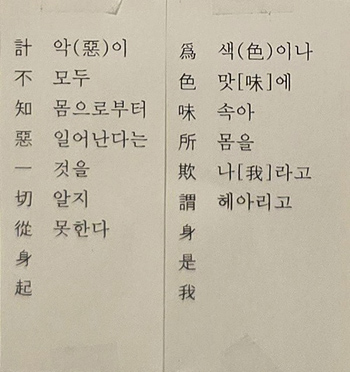 爲色味所欺謂身是我
색(色)이나
맛[味]에
속아
몸을
나[我]라고
헤아리고
計不知惡一切從身起
악(惡)이
모두
몸으로부터
일어난다는
것을
알지
못한다